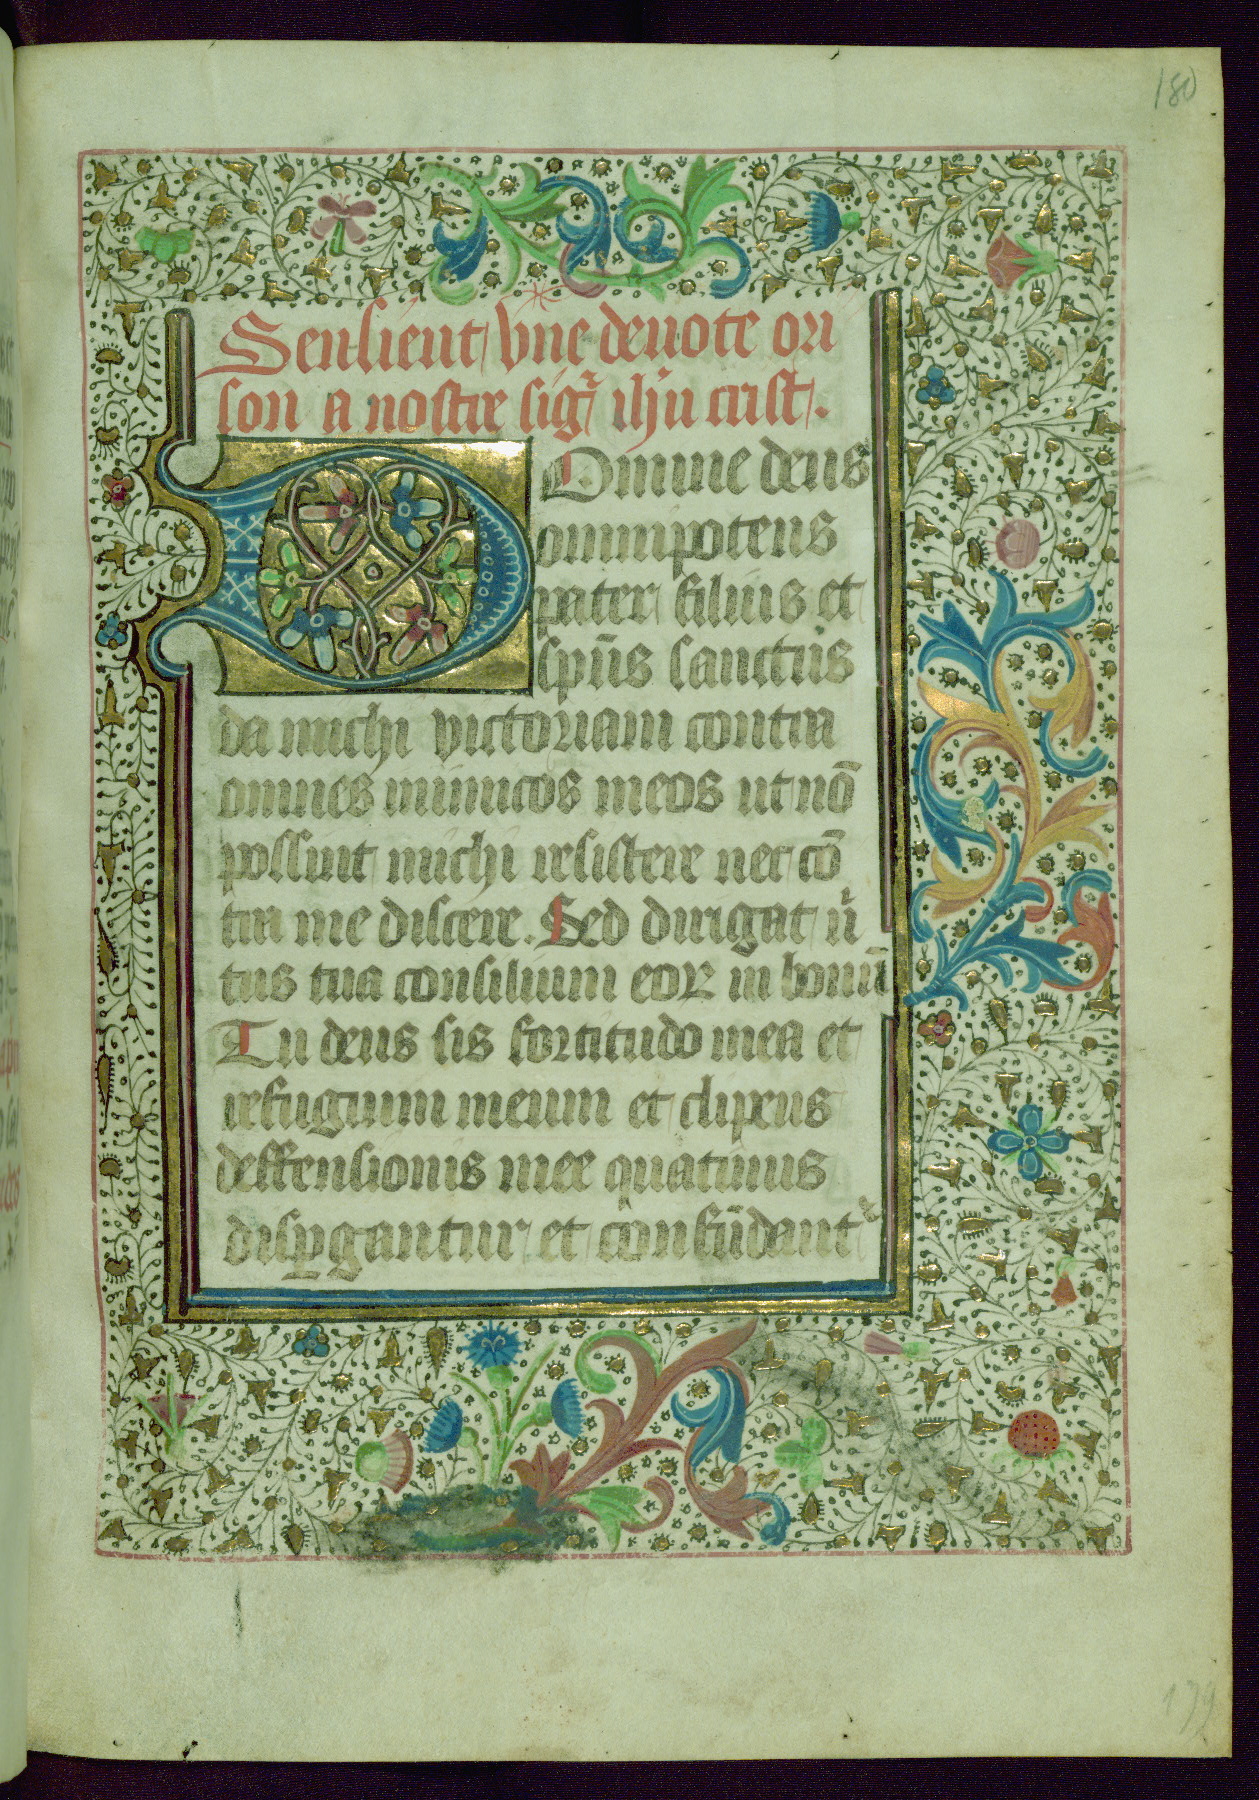 180
Sensieut vne deuote ori
son a nostre sigr̄ ihū crist.
Domine deus
omnipotens
pater filius et
spūs sanctus
da michi victoriam contra
omnes inimicos meos ut nō
possint michi resistere nec cō
tra me dicere. Sed dirigat ūr
tus tua consilium eoꝝ in bonū
Tu deus sis fortitudo mea et
refugium meum et clipeus
deffensionis mee quatinus
disꝑgantur et confūdantᷣ
179